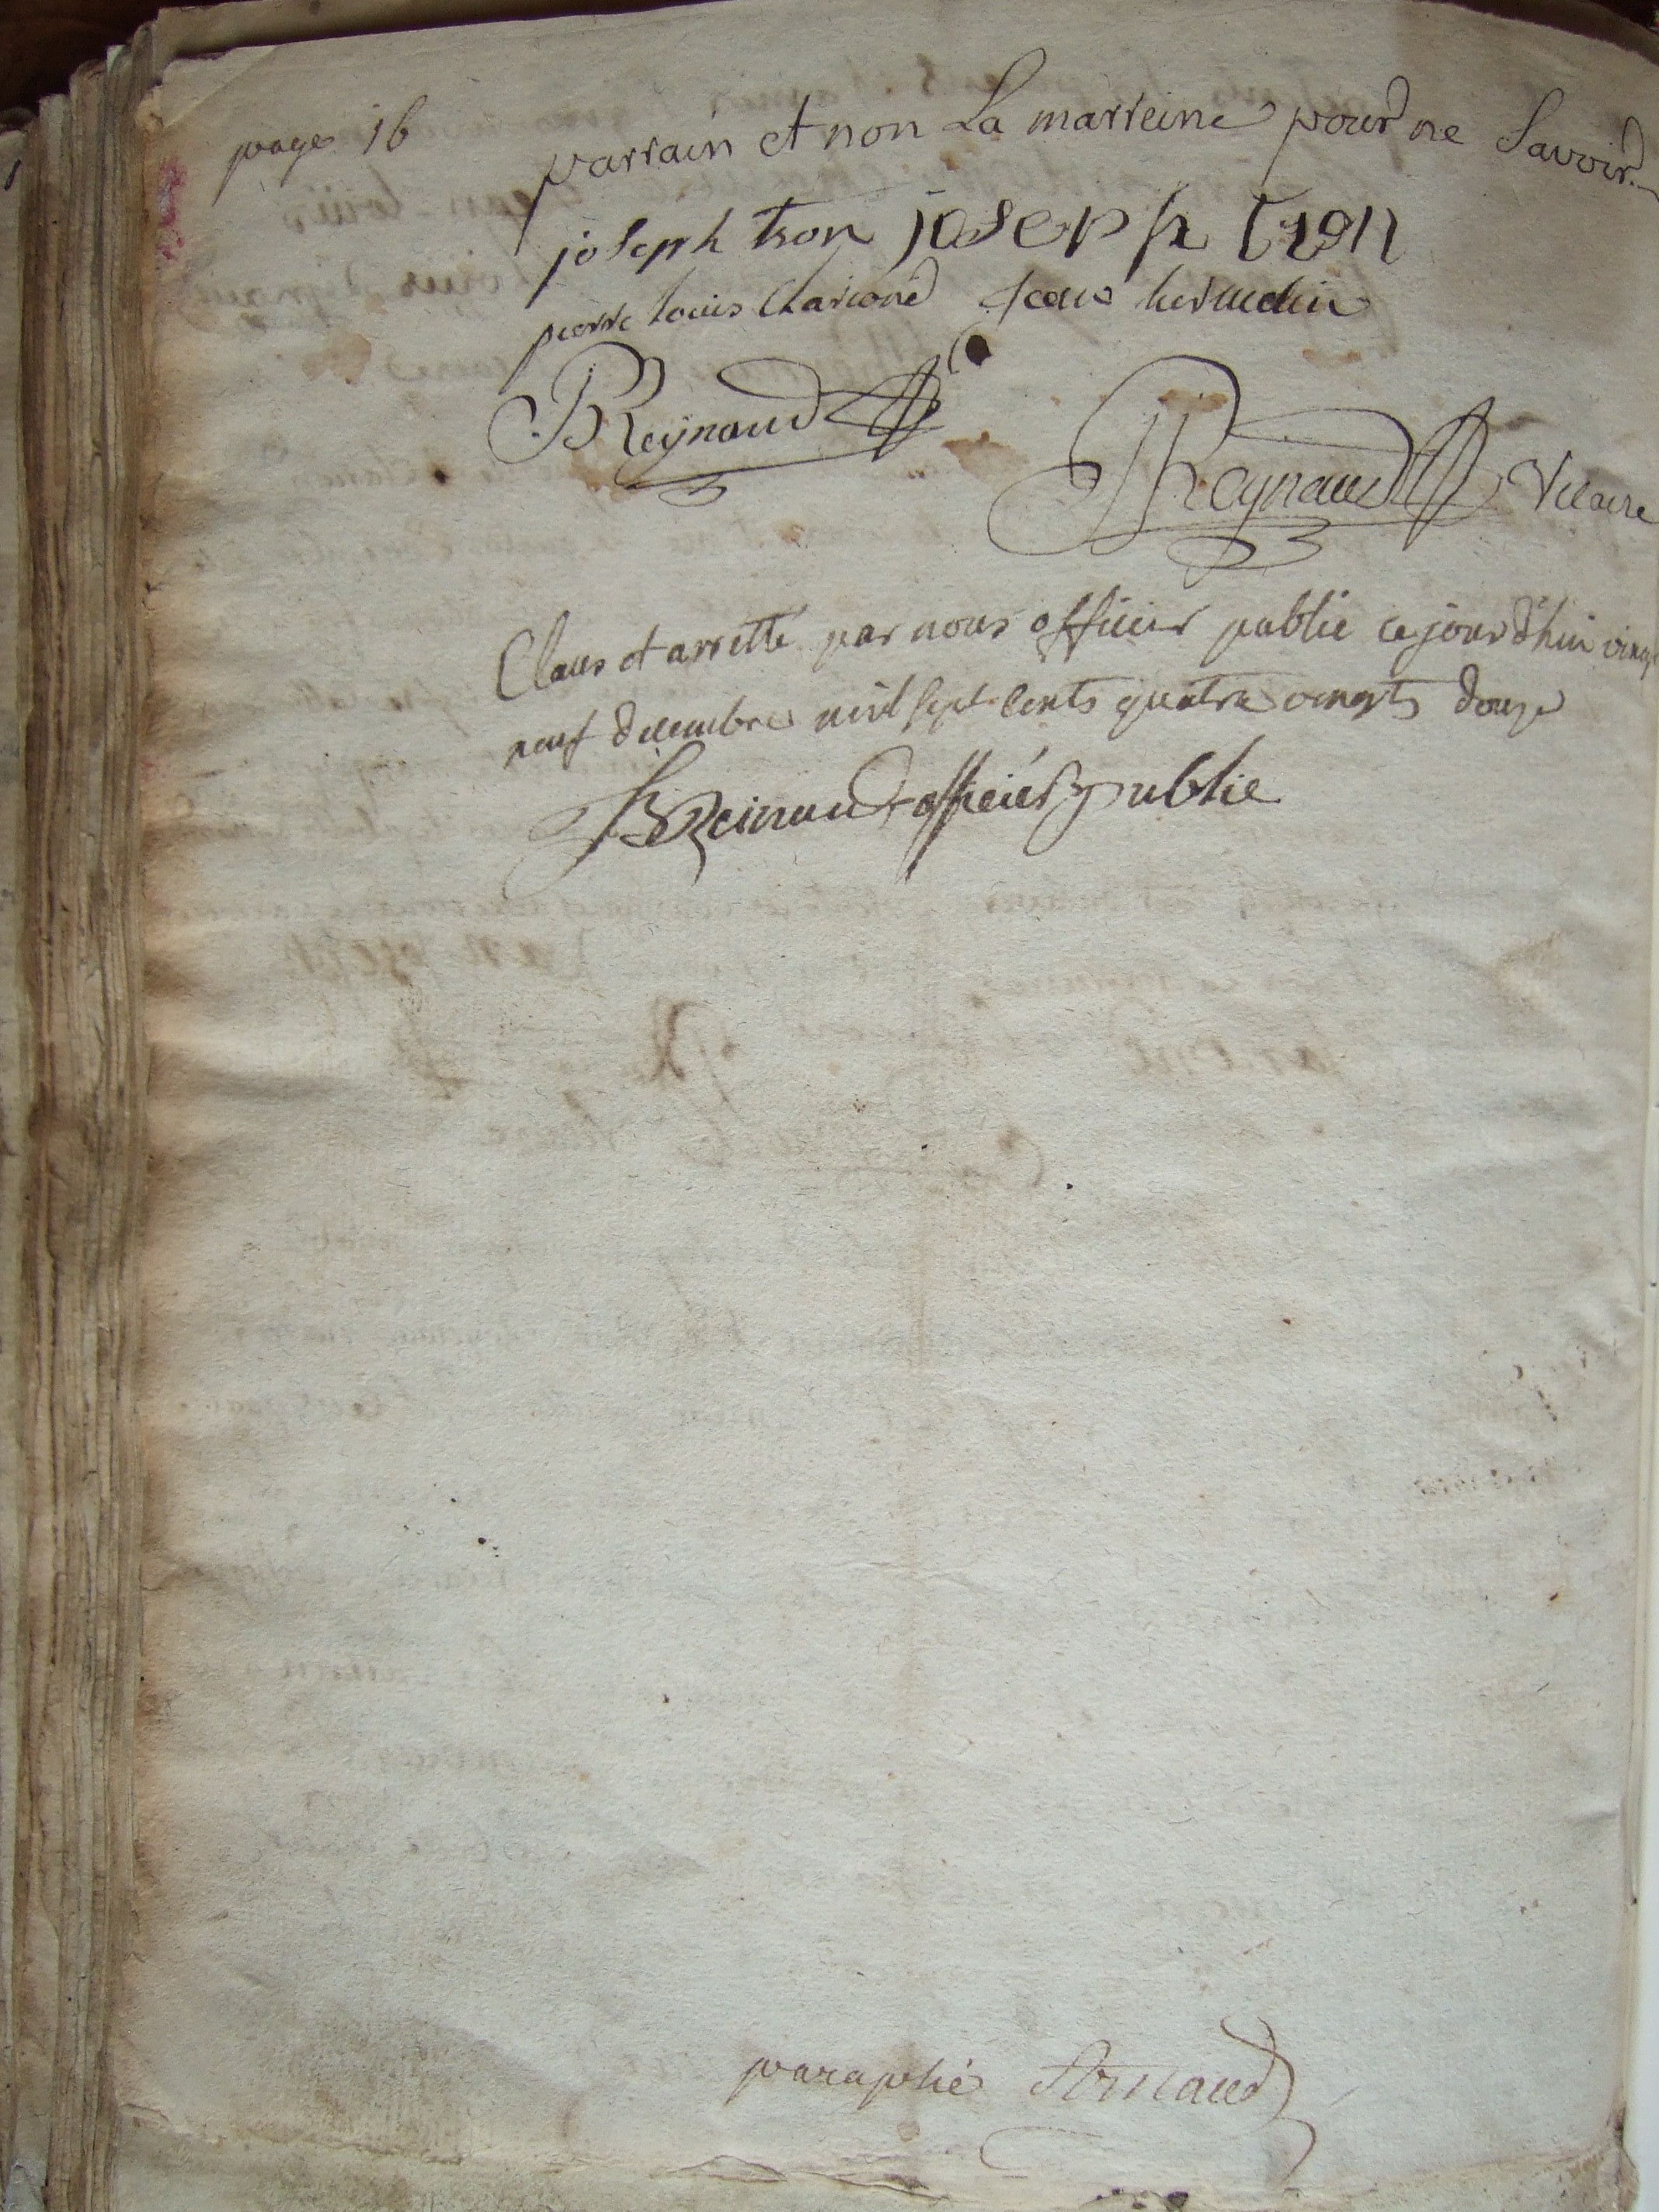 page 16
parrain et non La marreine pour ne Savoir
joseph tron joseph tron
pierre louis
Reynaud
Reynaud Vicaire
Claus et arretté par nous officier public ce jourd'hui vingt
neuf decembre mil sept cents quatre vingts douze
Reinaud officiér public
paraphé Arnaud